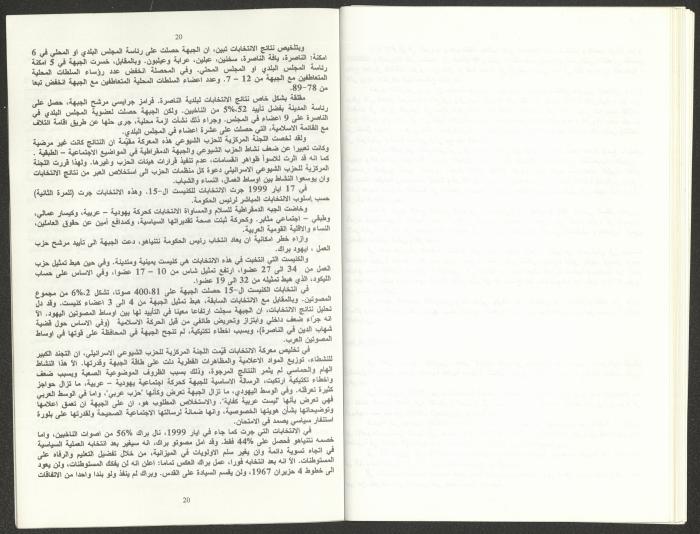 20
وبتلخيص نتائج الانتخابات تبين، ان الجبهة حصلت على رئاسة المجلس البلدي او المحلي في 6
امكنة: الناصرة، يافة الناصرة، سخنين، عبلين، عرابة وعيلبون. وبالمقابل، خسرت الجبهة في 5 امكنة
رئاسة المجلس البلدي او المجلس المحلي. وفي المحصلة انخفض عدد رؤساء السلطات المحلية
المتعاطفين مع الجبهة من 12 – 7. وعدد اعضاء السلطات المحلية المتعاطفين مع الجبهة انخفض تبعا
من 78-89.
مقلقة بشكل خاص نتائج الانتخابات لبلدية الناصرة. فرامز جرايسي مرشح الجبهة، حصل على
رئاسة المدينة بفضل تأييد 52،5% من الناخبين. ولكن الجبهة حصلت لعضوية المجلس البلدي في
الناصرة على 9 اعضاء في المجلس. وجراء ذلك نشأت ازمة محلية، جرى حلها عن طريق اقامة ائتلاف
مع القائمة الاسلامية، التي حصلت على عشرة اعضاء في المجلس البلدي.
ولقد لخصت اللجنة المركزية للحزب الشيوعي هذه المعركة مقيّمة ان النتائج كانت غير مرضية
وكانت تعبيرا عن ضعف نشاط الحزب الشيوعي والجبهة الدمقراطية في المواضيع الاجتماعية – الطبقية.
كما انه قد اثرت للاسوأ ظواهر انقسامات، عدم تنفيذ قرارات هيئات الحزب وغيرها. ولهذا قررت اللجنة
المركزية للحزب الشيوعي الاسرائيلي دعوة كل منظمات الحزب الى استخلاص العبر من نتائج الانتخابات
وان يوسعوا النشاط بين اوساط العمال، النساء والشباب.
في 17 ايار 1999 جرت الانتخابات للكنيست ال-15. وهذه الانتخابات جرت (للمرة الثانية)
حسب اسلوب الانتخابات المباشر لرئيس الحكومة.
وخاضت الجبهة الدمقراطية للسلام والمساواة الانتخابات كحركة يهودية – عربية، وكيسار عمالي،
وطبقي – اجتماعي مثابر. وكحركة ثبتت صحة تقديراتها السياسية، وكمدافع أمين عن حقوق العاملين،
النساء والاقلية القومية العربية.
وازاء خطر امكانية ان يعاد انتخاب رئيس الحكومة نتنياهو، دعت الجبهة الى تأييد مرشح حزب
العمل، ايهود براك.
والكنيست التي انتخبت في هذه الانتخابات هي كنيست يمينية ومتدينة. وفي حين هبط تمثيل حزب
العمل من 34 الى 27 عضوا، ارتفع تمثيل شاس من 10 – 17 عضوا، وفي الاساس على حساب
الليكود، الذي هبط تمثيله من 32 الى 19 عضوا.
في انتخابات الكنيست ال-15 حصلت الجبهة على 400،81 صوتا، تشكل 2،6% من مجموع
المصوتين. وبالمقابل مع الانتخابات السابقة، هبط تمثيل الجبهة من 4 الى 3 اعضاء كنيست. وقد دل
تحليل نتائج الانتخابات، ان الجبهة سجلت ارتفاعا معينا في التأييد لها بين اوساط المصوتين اليهود. الا
انه جراء ضعف داخلي وابتزاز وتحريض طائفي من قبل الحركة الاسلامية (وفي الاساس حول قضية
شهاب الدين في الناصرة)، وبسبب اخطاء تكتيكية، لم تنجح الجبهة في المحافظة على قوتها في اوساط
المصوتين العرب.
في تخليص معركة الانتخابات قيّمت اللجنة المركزية للحزب الشيوعي الاسرائيلي، ان التجند الكبير
للنشطاء، توزيع المواد الاعلامية والمظاهرات القطرية دلت على طاقة الجبهة وقدرتها. الا هذا النشاط
الهام والحماسي لم يثمر النتائج المرجوة، وذلك بسبب الظروف الموضوعية الصعبة وبسبب ضعف
واخطاء تكتيكية ارتكبت، الرسالة الاساسية للجبهة كحركة اجتماعية يهودية – عربية، ما تزال حواجز
كثيرة تعرقله. وفي الوسط اليهودي، ما تزال الجبهة تعرض وكأنها "حزب عربي"، واما في الوسط العربي
فهي تعرض بأنها "ليست عربية كفاية". والاستخلاص المطلوب هو، ان على الجبهة ان تعمق اعلامها
وتوضيحاتها بشأن هويتها الخصوصية، وانها ضمانة لرسالتها الاجتماعية الصحيحة ولقدرتها على بلورة
استنفار سياسي يصمد في الامتحان.
في الانتخابات التي جرت كما جاء في ايار 1999، نال براك 56% من اصوات الناخبين، واما
خصمه نتنياهو فحصل على 44% فقط. وقد امل مصوتو براك، انه سيغير بعد انتخابه العملية السياسية
في اتجاه تسوية دائمة وان يغير سلم الاولويات في الميزانية، من خلال تفضيل التعليم والرفاه على
المستوطنات. الا انه بعد انتخابه فورا، عمل براك العكس تماما: اعلن انه لن يفكك المستوطنات، ولن يعود
الى خطوط 4 حزيران 1967، ولن يقسم السيادة على القدس. وبراك لم ينفذ ولو بندا واحدا من الاتفاقات
20